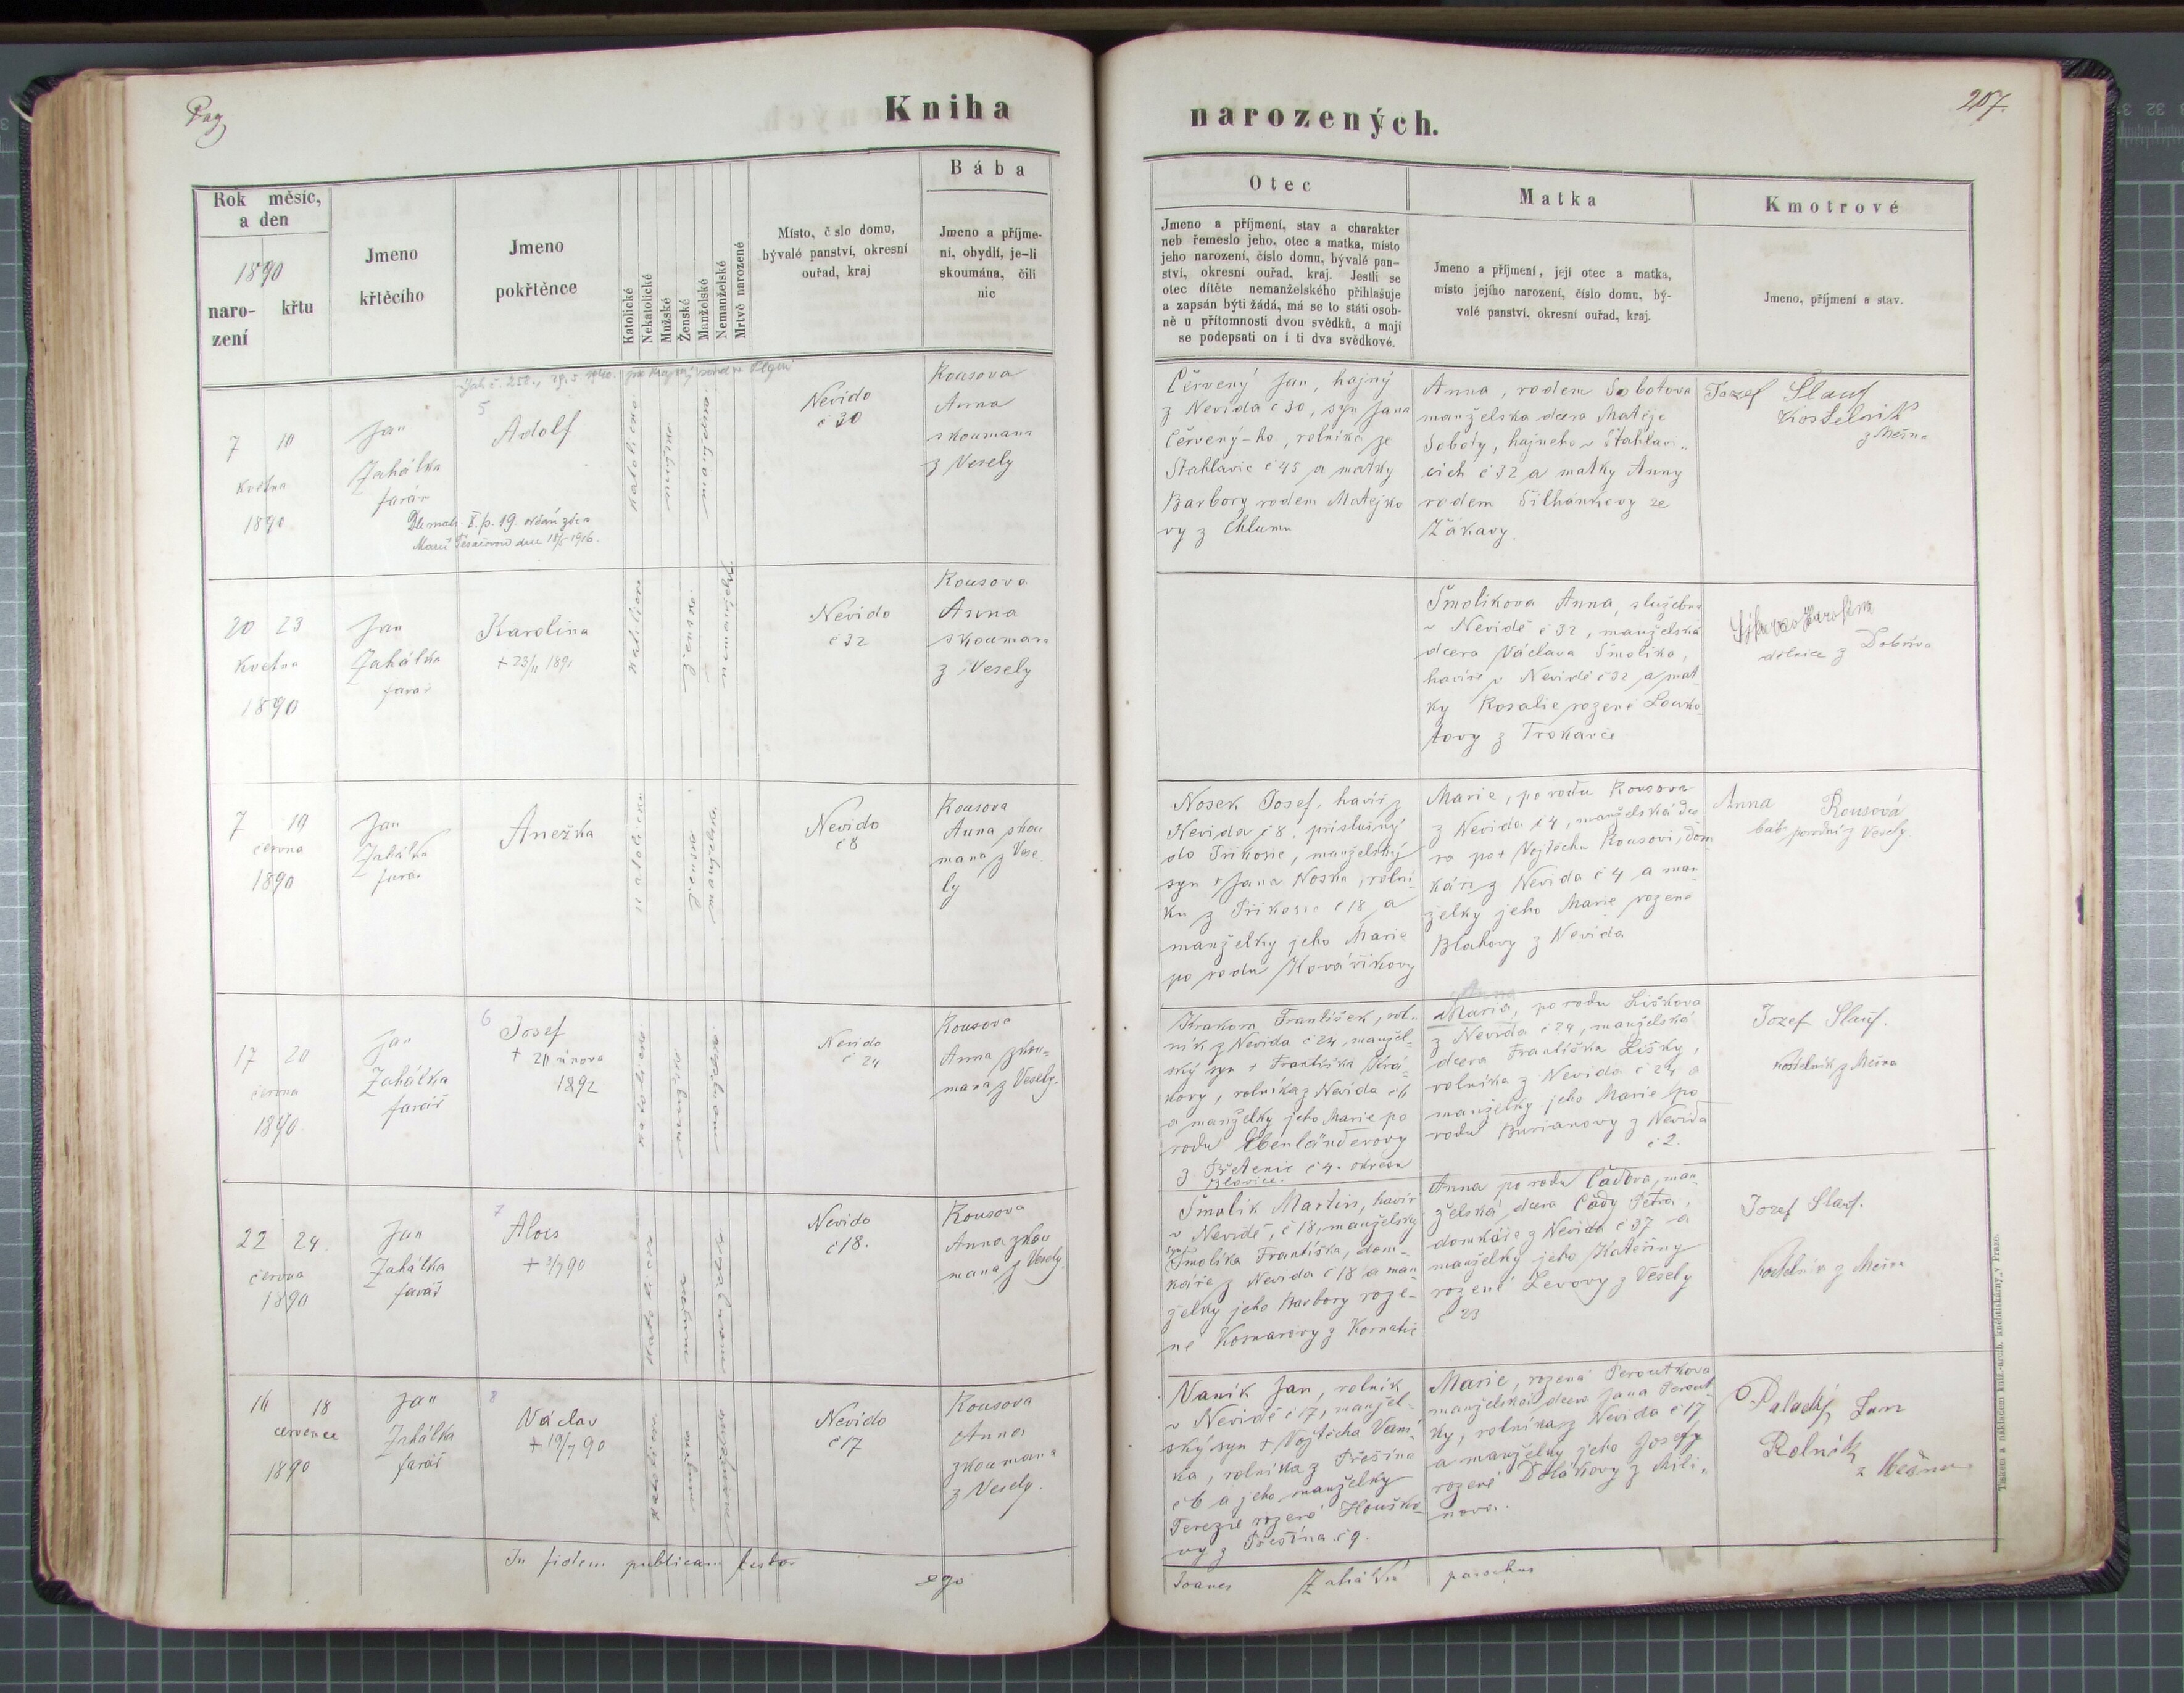 Pag
Kniha
narozených.
207.
Rok měsíc,
a den
1890
naro-
zení
křtu
Jmeno
křtěcího
Jmeno
pokřtěnce
Katolické
Nekatolické
Mužské
Ženské
Manželské
Nemanželské
Mrtvě narozené
Místo, č slo domu,
bývalé panství, okresní
ouřad, kraj
Bába
Jmeno a příjme-
ní, obydlí, je-li
skoumána, čili
nic
Otec
Jmeno a příjmení, stav a charakter
neb řemeslo jeho, otec a matka, místo
jeho narození, číslo domu, bývalé pan-
ství, okresní ouřad, kraj. Jestli se
otec dítěte nemanželského přihlašuje
a zapsán býti žádá, má se to státi osob-
ně u přítomnosti dvou svědků, a mají
se podepsati on i ti dva svědkové.
Matka
Jmeno a příjmení, její otec a matka,
místo jejího narození, číslo domu, bý-
valé panství, okresní ouřad, kraj.
Kmotrové
Jmeno, příjmení a stav.
7 10
května
1890
Jan
Zahálka
farár
5
Adolf
Dle mat. X. p. 19. oddán zde s
Marií dne 18/5 1916.
katolické
mužské
manželské
Nevido
č 30
Kousova
Anna
skoumana
z Vesely
Červený Jan, hajný
z Nevida č 30, syn Jana
Červený-ho, rolníka ze
Štahlavic č 45 a matky
Barbory rodem Matejko
vy z Chlumu
Anna, rodem Sobotova
manželska dcera Matěje
Soboty, hajneho v Štahlavi-
cích č 32 a matky Anny
rodem Šilhánkovy ze
Žákavy.
Jozef Slauf
Kostelnik
z Mešna
20 23
května
1890
Jan
Zahálka
farař
Karolina
+ 23/11 1891
ženské
nemanželské
Nevido
č 32
Kousova
Anna
skoumana
z Vesely
Smolikova Anna, služebna
v Nevidě č 32, manželská
dcera Václava Smolika,
havíře v Nevidě č 32 a mat
ky Rosalie rozené Louko-
tovy z Trokavce
Karolina
dělnice z Dobřiva
7 10
června
1890
Jan
Zahálka
farár
Anežka
katolické
ženské
manželské
Nevido
č 8
Kousova
Anna skou
mana z Vese
ly
Nosek Josef, havíř z
Nevida č 8, příslušný
do Příkosic, manželský
syn + Jana Noska, rolní-
ka z Příkosic č 18 a
manželky jeho Marie
po rodu Kovářikovy
Marie, po rodu Kousova
z Nevida č 4, manželská dce
ra po + Vojtěchu Kousovi, dom
káři z Nevida č 4 a man
želky jeho Marie rozené
Blahovy z Nevida
Anna Kousová
bába porodní z Vesely
17 20
června
1890
Jan
Zahálka
farář
6
Josef
+ 20 února
1892
katolické
mužské
manželské
Nevido
č 24
Kousova
Anna zkou-
mana z Vesely.
Krakora František, rol-
ník z Nevida č 24, manžel-
ský syn + Františka Kra-
kory, rolníka z Nevida č 6
a manželky jeho Marie po
rodu Ebenländerovy
z č 4. okresu
Blovice.
Maria, po rodu Liškova
z Nevida č 24, manželská
dcera Františka Lišky,
rolníka z Nevida č 24 a
manželky jeho Marie po
rodu Burianovy z Nevida
č 2.
Jozef Slauf.
kostelník z Mešna
22 24
června
1890
Jan
Zahálka
farář
7
Alois
+ 3/7 90
mužské
manželské
Nevido
č 18.
Kousova
Anna zkou
mana z Vesely.
Smolík Martin, havíř
v Nevidě, č 18, manželsky
syn
Smolíka Františka, dom-
káře z Nevida č 18 a man
želky jeho Barbory roze-
né Kosnarovy z Kornatic
Anna po rodu Čadova, man-
želská dcera Čady Petra,
domkáře z Nevida č 37 a
manželky jeho Kateřiny
rozené Levovy z Vesely
č 23
Jozef Slauf.
Kostelnik z Mešna
14 18
července
1890
Jan
Zahálka
farář
8
Václav
+ 19/7 90
mužské
manželské
Nevido
č 17
Kousova
Anna
zkoumana
z Vesely.
Vaník Jan, rolník
v Nevidě č 17, manžel-
ský syn + Vojtěcha Vaní-
ka, rolníka z Přešína
č 6 a jeho manželky
Terezie rozené Houško-
vy z Přešína č 9.
Marie, rozená Peroutkova
manželská dcera Jana Perout
ky, rolníka z Nevida č 17
a manželky jeho Josefy
rozené Dolákovy z Mili-
nova.
Palacký Jan
Rolnik
z Mešna
In fidem publicam testor
ego
Joanes Zahálka parochus
Tiskem a nákladem kníž.-arcib. knihtiskárny v Praze.